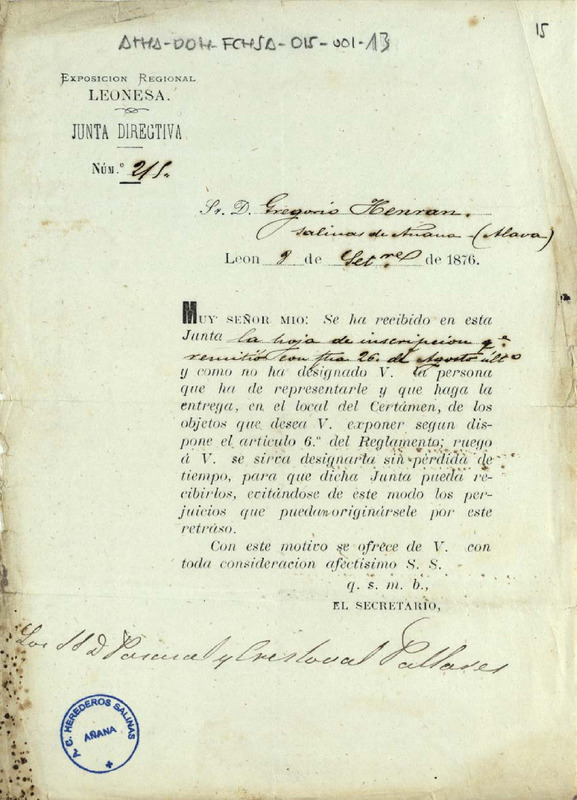 ATHA-DOH-FCHSA-015-001-13
15
EXPOSICION REGIONAL
LEONESA.
JUNTA DIRECTIVA
NÚM.º 215.
Sr. D. Gregorio Henran.
Salinas de Añana - (Alava)
Leon 9 de Set.re de 1876.
MUY SEÑOR MIO: Se ha recibido en esta
Junta la hoja de inscripcion q.e
remitió con fha 26 de Agosto últº
y como no ha designado V. la persona
que ha de representarle y que haga la
entrega, en el local del Certámen, de los
objetos que desea V. exponer segun dis-
pone el artículo 6.º del Reglamento; ruego
á V. se sirva designarla sin pérdida de
tiempo, para que dicha Junta pueda re-
cibirlos, evitándose de este modo los per-
juicios que puedan originársele por este
retraso.
Con este motivo se ofrece de V. con
toda consideracion afectísimo S. S.
q. s. m. b.,
EL SECRETARIO,
Los D Pascual y Cristoval Pallares
A. C. HEREDEROS SALINAS
AÑANA